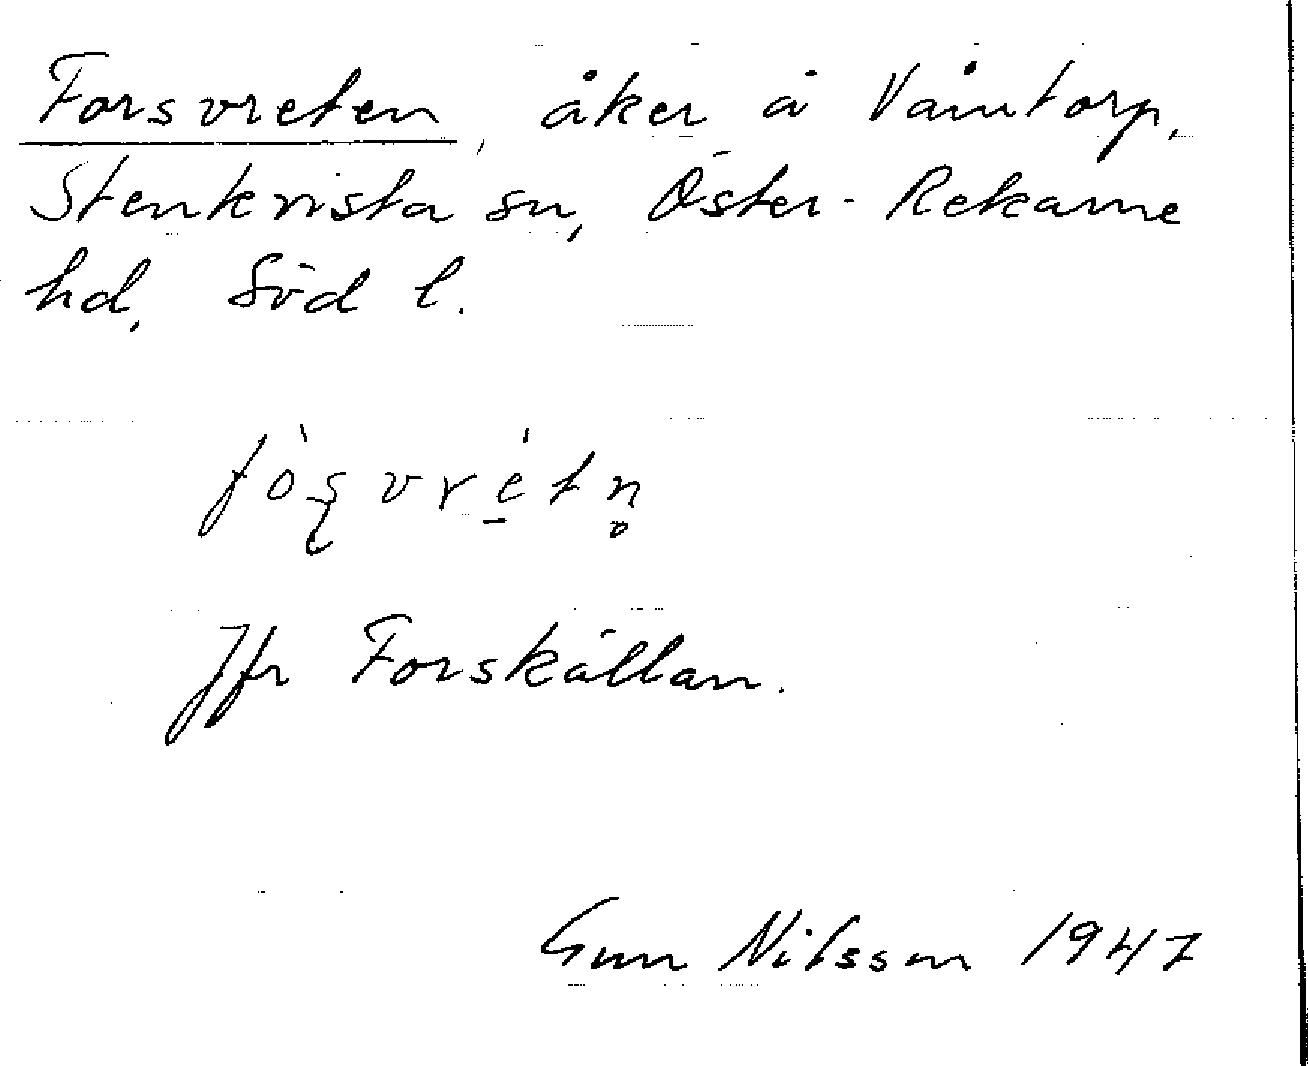 Forsvreten, åker å Våmtorp,
Stenkvista sn, Öster-Rekarne
hd, Söd l.
fòʂvrét̠n̥
Jfr Forskällan.
Gun Nilsson 1947